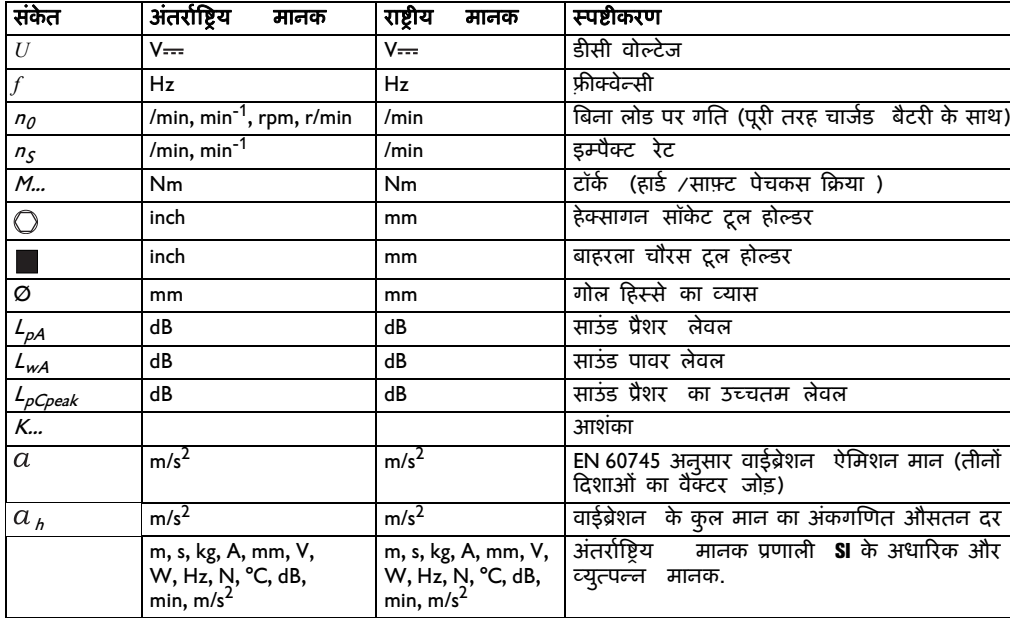 संकेत अंतर्राष्ट्रिय मानक राष्ट्रीय मानक स्पष्टीकरण
U V⎓ V⎓ डीसी वोल्टेज
f Hz Hz फ़्रीक्वेन्सी
n0 /min, min-1, rpm, r/min /min बिना लोड पर गति (पूरी तरह चार्जड बैटरी के साथ)
nS /min, min-1 /min इम्पैक्ट रेट
M... Nm Nm टॉर्क (हार्ड /साफ़्ट पेचकस क्रिया )
inch mm हेक्सागन सॉकेट टूल होल्डर
inch mm बाहरला चौरस टूल होल्डर
Ø mm mm गोल हिस्से का व्यास
LpA dB dB साउंड प्रैशर लेवल
LwA dB dB साउंड पावर लेवल
LpCpeak dB dB साउंड प्रैशर का उच्चतम लेवल
K... आशंका
a m/s2 m/s2 EN 60745 अनुसार वाईब्रेशन ऐमिशन मान (तीनों
दिशाओं का वैक्टर जोड़)
ah m/s2 m/s2 वाईब्रेशन के कुल मान का अंकगणित औसतन दर
m, s, kg, A, mm, V, m, s, kg, A, mm, V, अंतर्राष्ट्रिय मानक प्रणाली SI के अधारिक और
W, Hz, N, °C, dB, W, Hz, N, °C, dB, व्युत्पन्न मानक.
min, m/s2 min, m/s2